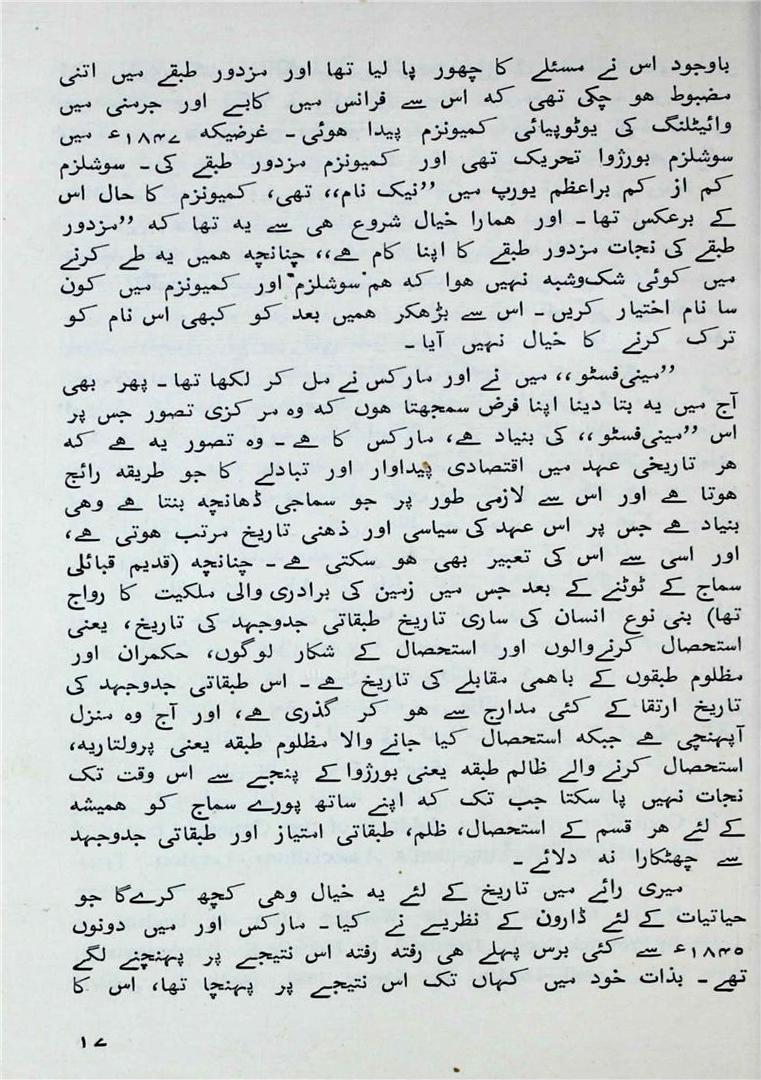 باوجود اس نے مسئلے کا چھور پا لیا تھا اور مزدور طبقے میں اتنی
مضبوط ہو چکی تھی کہ اس سے فرانس میں کابے اور جرمنی میں
وائیٹلنگ کی یوٹوپیائی کمیونزم پیدا ہوئی۔ غرضیکہ ۱۸۴۷ء میں
سوشلزم بورژوا تحریک تھی اور کمیونزم مزدور طبقے کی۔ سوشلزم
کم از کم براعظم یورپ میں ’’نیک نام،، تھی، کمیونزم کا حال اس
کے برعکس تھا۔ اور ہمارا خیال شروع ہی سے یہ تھا کہ ’’مزدور
طبقے کی نجات مزدور طبقے کا اپنا کام ہے،، چنانچہ ہمیں یہ طے کرنے
میں کوئی شک‌وشبہ نہیں ہوا کہ ہم سوشلزم اور کمیونزم میں کون
سا نام اختیار کریں۔ اس سے بڑھکر ہمیں بعد کو کبھی اس نام کو
ترک کرنے کا خیال نہیں آیا۔
’’مینی‌فسٹو،، میں نے اور مارکس نے مل کر لکھا تھا۔ پھر بھی
آج میں یہ بتا دینا اپنا فرض سمجھتا ہوں کہ وہ مرکزی تصور جس پر
اس ’’مینی‌فسٹو،، کی بنیاد ہے، مارکس کا ہے۔ وہ تصور یہ ہے کہ
ہر تاریخی عہد میں اقتصادی پیداوار اور تبادلے کا جو طریقہ رائج
ہوتا ہے اور اس سے لازمی طور پر جو سماجی ڈھانچہ بنتا ہے وہی
بنیاد ہے جس پر اس عہد کی سیاسی اور ذہنی تاریخ مرتب ہوتی ہے،
اور اسی سے اس کی تعبیر بھی ہو سکتی ہے۔ چنانچہ (قدیم قبائلی
سماج کے ٹوٹنے کے بعد جس میں زمین کی برادری والی ملکیت کا رواج
تھا) بنی نوع انسان کی ساری تاریخ طبقاتی جدوجہد کی تاریخ، یعنی
استحصال کرنے‌والوں اور استحصال کے شکار لوگوں، حکمران اور
مظلوم طبقوں کے باہمی مقابلے کی تاریخ ہے۔ اس طبقاتی جدوجہد کی
تاریخ ارتقا کے کئی مدارج سے ہو کر گذری ہے، اور آج وہ منزل
آپہنچی ہے جبکہ استحصال کیا جانے والا مظلوم طبقہ یعنی پرولتاریہ،
استحصال کرنے والے ظالم طبقہ یعنی بورژوا کے پنجے سے اس وقت تک
نجات نہیں پا سکتا جب تک کہ اپنے ساتھ پورے سماج کو ہمیشہ
کے لئے ہر قسم کے استحصال، ظلم، طبقاتی امتیاز اور طبقاتی جدوجہد
سے چھٹکارا نہ دلائے۔
میری رائے میں تاریخ کے لئے یہ خیال وہی کچھ کرے‌گا جو
حیاتیات کے لئے ڈارون کے نظریے نے کیا۔ مارکس اور میں دونوں
۱۸۴۵ء سے کئی برس پہلے ہی رفتہ رفتہ اس نتیجے پر پہنچنے لگے
تھے۔ بذات خود میں کہاں تک اس نتیجے پر پہنچا تھا، اس کا
۱۷